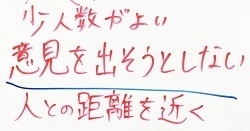 少人数がよい
意見を出そうとしない
人との距離を近く